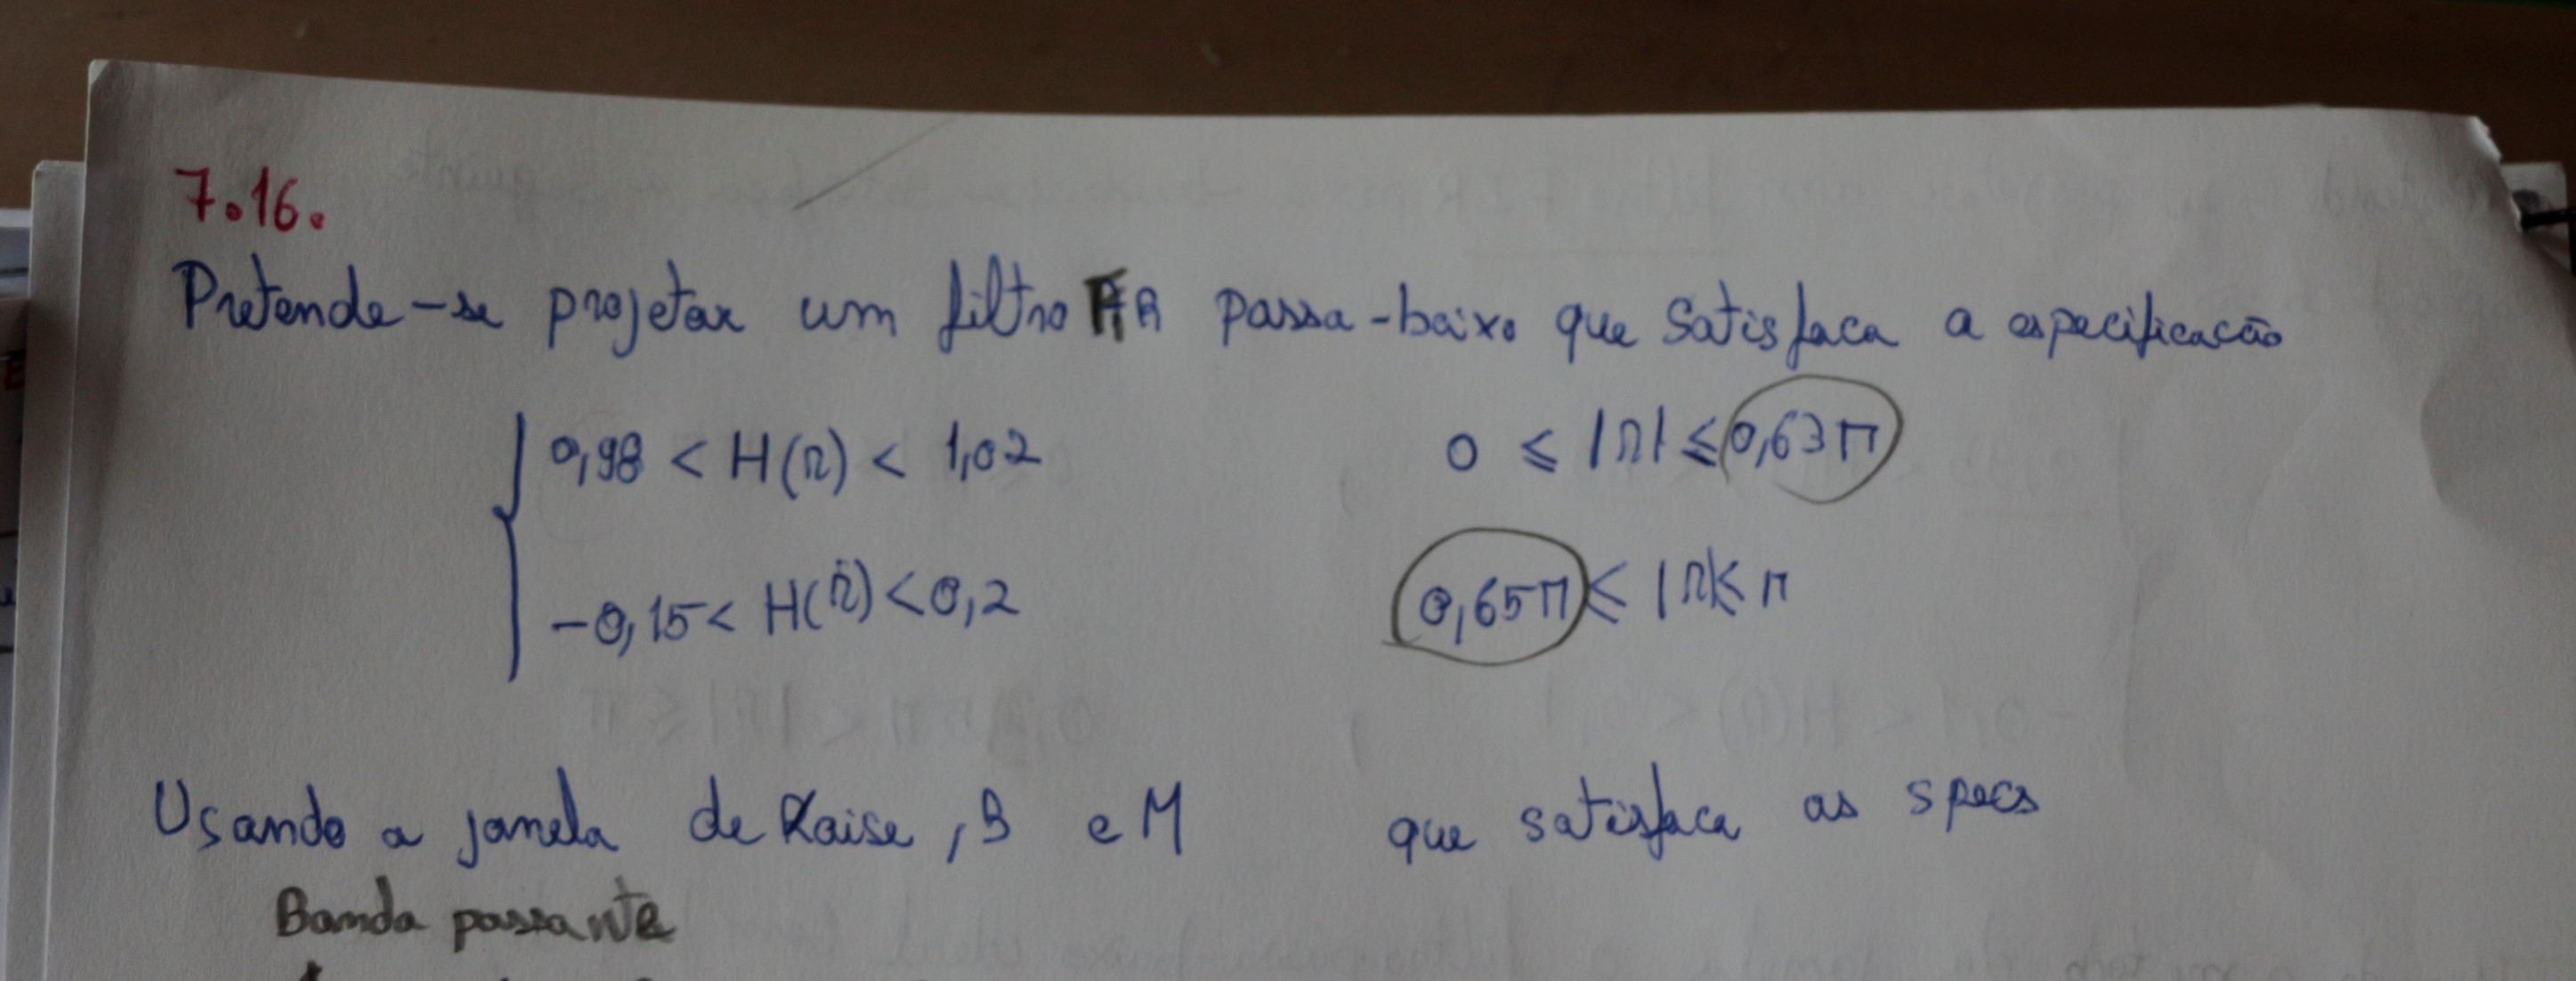 7.16.
Pretende-se projetar um filtro FIR passa-baixo que satisfaca a especificacão
0,98 < H(Ω) < 1,02 0 ≤ |Ω| ≤ 0,63π
-0,15 < H(Ω) < 0,2 0,65π ≤ |Ω| ≤ π
Usando a janela de Kaise, B e M que satisfaca as specs
Banda passante